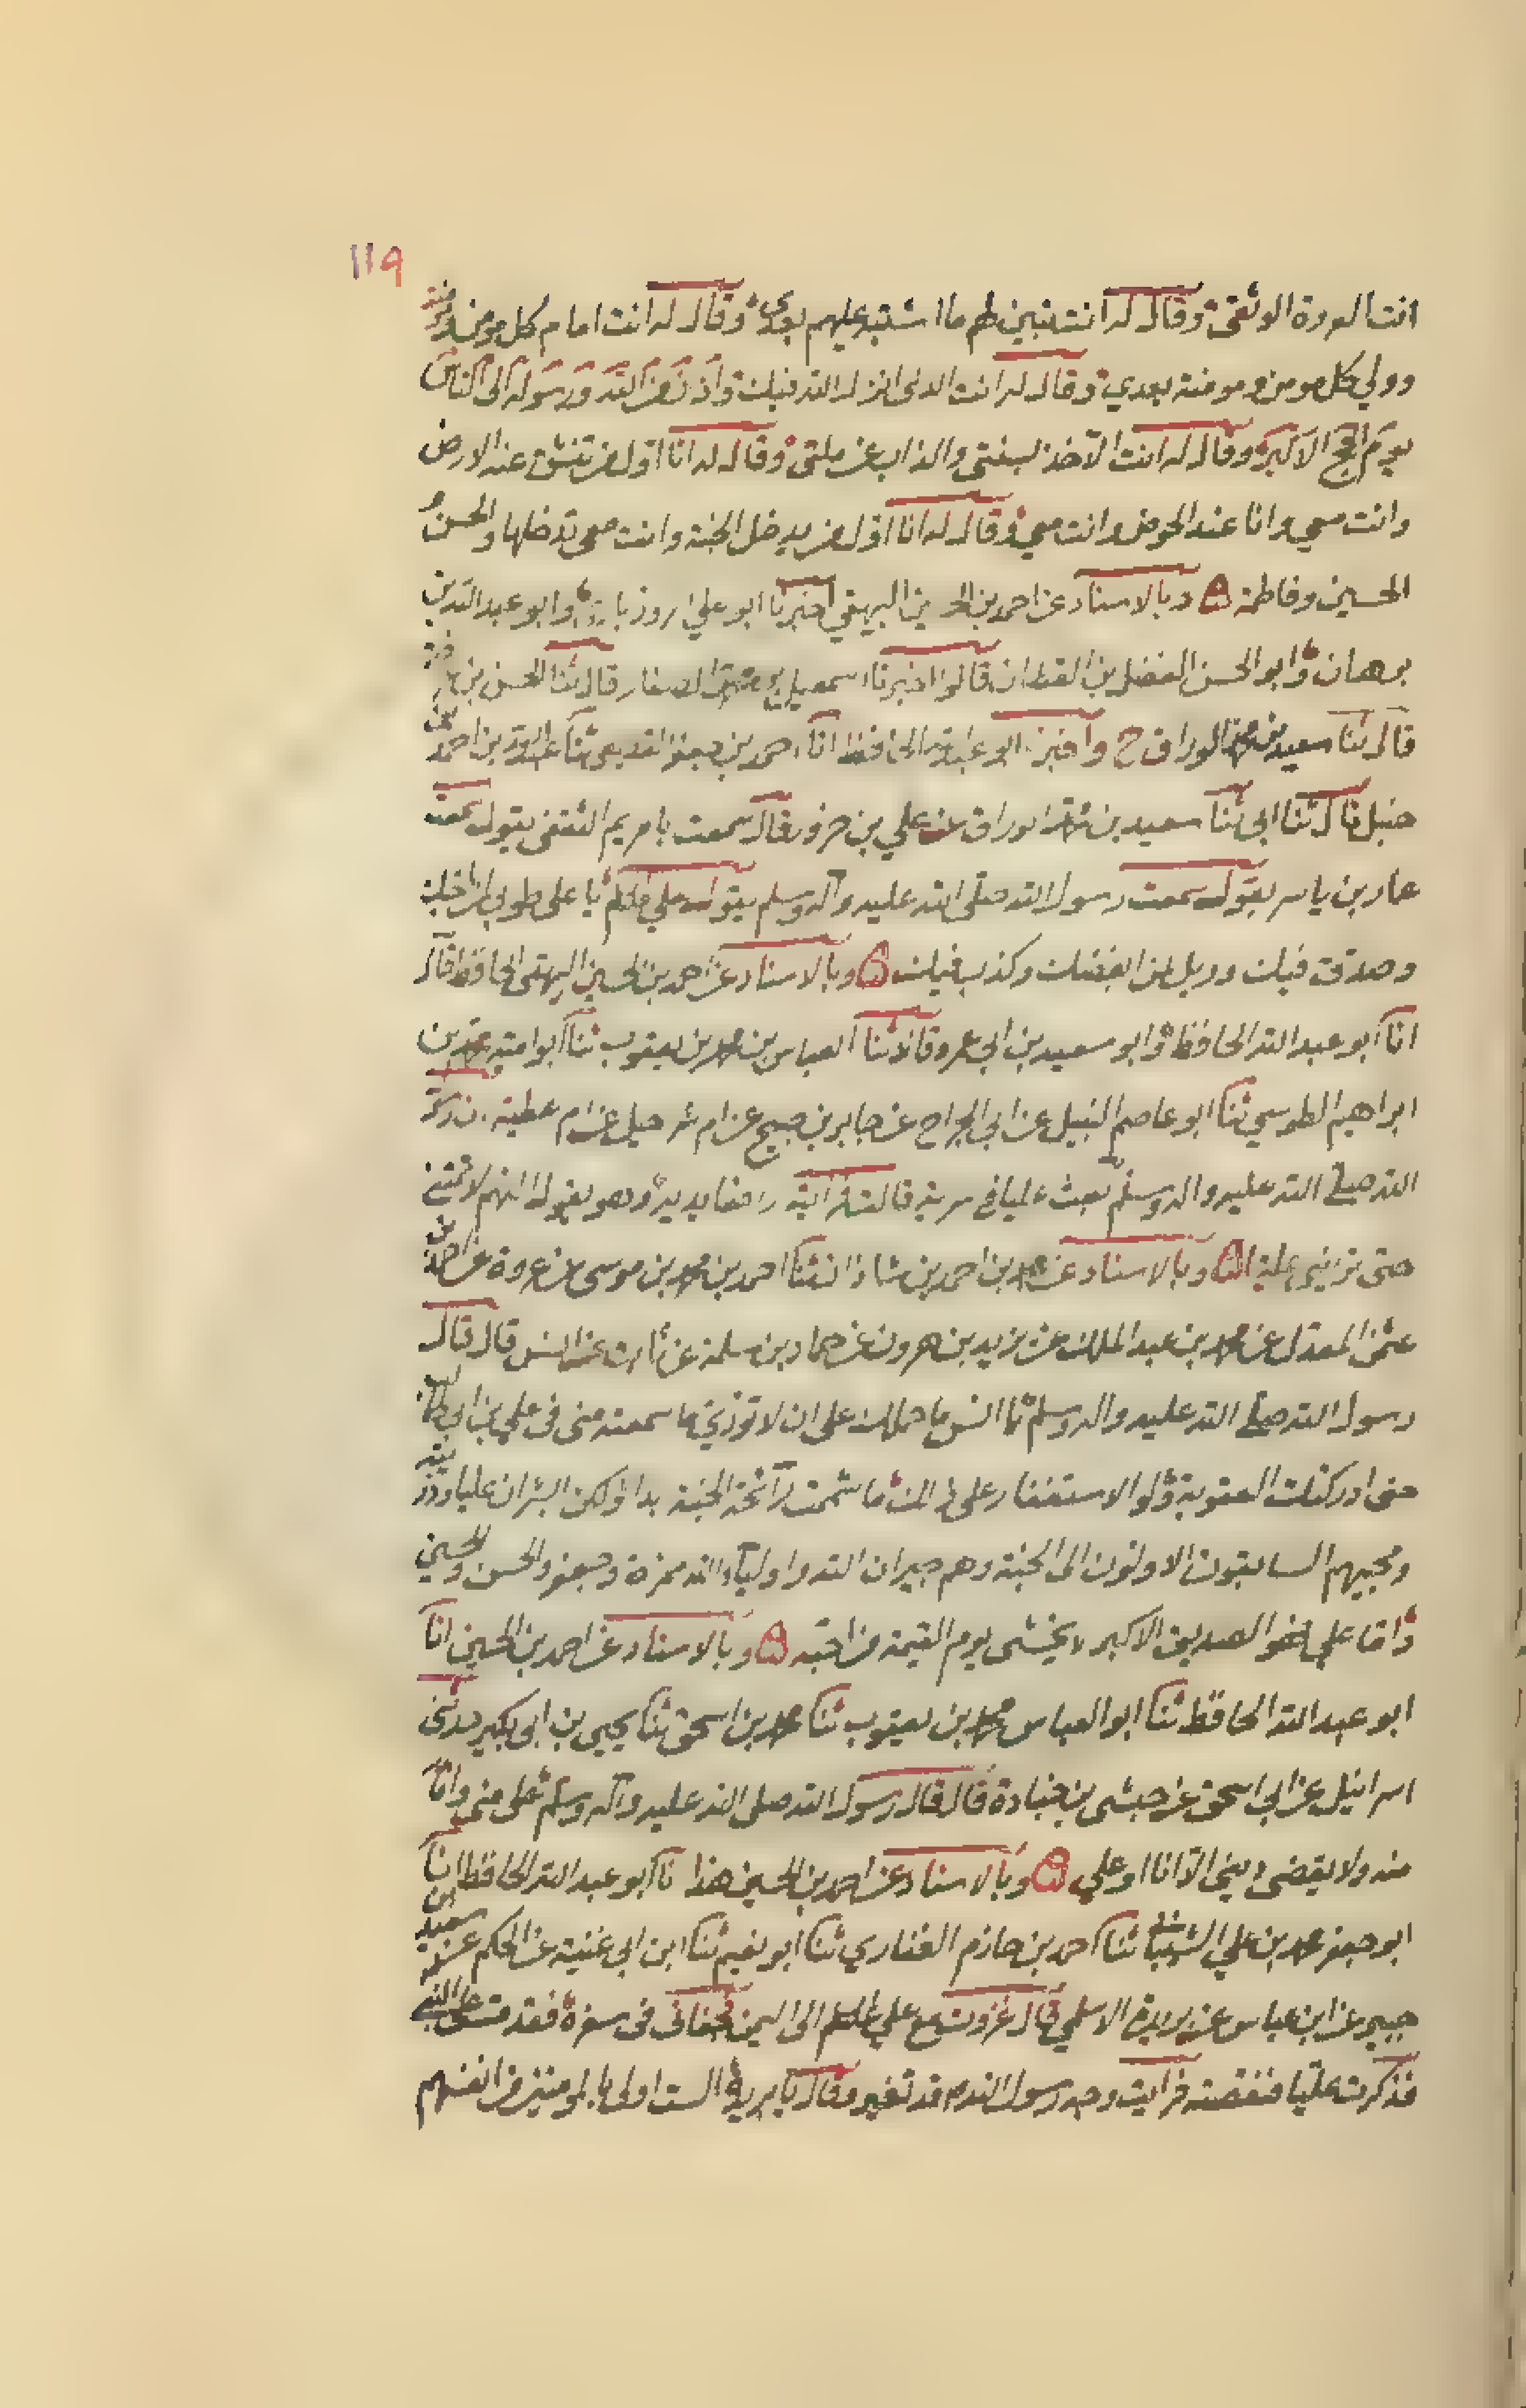 ١١٩
انت العروة الوثقى وقال له انت تبين لهم ما اشتبه عليهم بعدى وقال له انت امام كل مومن ومومنة
وولي كل مومن ومومنة بعدي وقال له انت الذى انزل الله فيك واذان من الله ورسوله الى الناس
يوم الحج الاكبر وقال له انت الآخذ بسنتى والذاب عن ملتى وقال له انا اول من تنشق عنه الارض
وانت معي وانا عند الحوض وانت معي وقال له انا اول من يدخل الجنة وانت معى تدخلها والحسن
الحسين وفاطمة وبالاسناد عن احمد بن الحسين البيهقي اخبرنا ابو علي الروذباري وابو عبد الله بن
برهان وابو الحسن الفضل بن القطان قالوا اخبرنا اسمعيل بن محمد الصفار قال ثنا الحسن بن عرفة
قال ثنا سعيد بن محمد الوراق ح واخبرنا ابو عبد الله الحافظ انا احمد بن جعفر القديعى ثنا عبد الله بن احمد بن
حنبل قال ثنا ابى ثنا سعيد بن محمد الوراق عن علي بن حزور قال سمعت با مريم الثقفى يقول سمعت
عمار بن ياسر يقول سمعت رسول الله صلى الله عليه وآله وسلم يقول لعلي يا على طوبى لمن احبك
وصدق فيك وويل لمن ابغضك وكذب فيك وبالاسناد عن احمد بن الحسين البيهقى الحافظ قال
انا ابو عبد الله الحافظ وابو سعيد بن ابي عمرو قالا ثنا العباس بن محمد بن يعقوب ثنا ابوا امية محمد بن
ابراهيم الطوسي ثنا ابو عاصم النبيل عن ابي الجراح عن جابر بن صبيح عن ام شرحيل عن ام عطية ان رسول
الله صلى الله عليه واله وسلم بعث عليا فى سرية قالت فرأيته رافعا يديه وهو يقول اللهم لا تمتنى
حتى ترينى عليا وبالاسناد عن محمد بن احمد بن شاذان ثنا احمد بن محمد بن موسى بن عروة عن احمد بن
عثمن المعدل عن محمد بن عبد الملك عن يزيد بن هرون عن حماد بن سلمة عن ثابت عن انس قال قال
رسول الله صلى الله عليه واله وسلم يا انس ما حملك على ان لا تؤدي ما سمعته منى فى علي بن ابي طالب
حتى ادركتك العقوبة ولولا استغفار على لك ما شممت رائحة الجنة ابدا ولكن ابشر ان عليا وذريته
ومحبيهم السابقون الاولون الى الجنة وهم جيران الله واولياء الله حمزة وجعفر والحسن والحسين
واما علي فهو الصديق الاكبر لا يخشى يوم القيمة من احبه وبالاسناد عن احمد بن الحسين انا
ابو عبد الله الحافظ ثنا ابو العباس محمد بن يعقوب ثنا محمد بن اسحق ثنا يحيى بن ابى بكير حدثنى
اسرائيل عن ابي اسحق عن حبشى بن جنادة قال قال رسول الله صلى الله عليه وآله وسلم على منى وانا
منه ولا يقضى دينى الا انا او علي وبالاسناد عن احمد بن الحسين هذا انا ابو عبد الله الحافظ انا
ابو جعفر محمد بن علي الشيبانى ثنا احمد بن حازم الغفاري ثنا ابو نعيم ثنا ابن ابى غنية عن الحكم عن سعيد بن
جبير عن ابن عباس عن بريدة الاسلمي قال غزوت مع علي الى اليمن فجفانى فى سفره فقدمت على النبي
فذكرت عليا فنقصته فرايت وجه رسول الله قد تغير وقال يا بريدة الست اولى بالمومنين من انفسهم